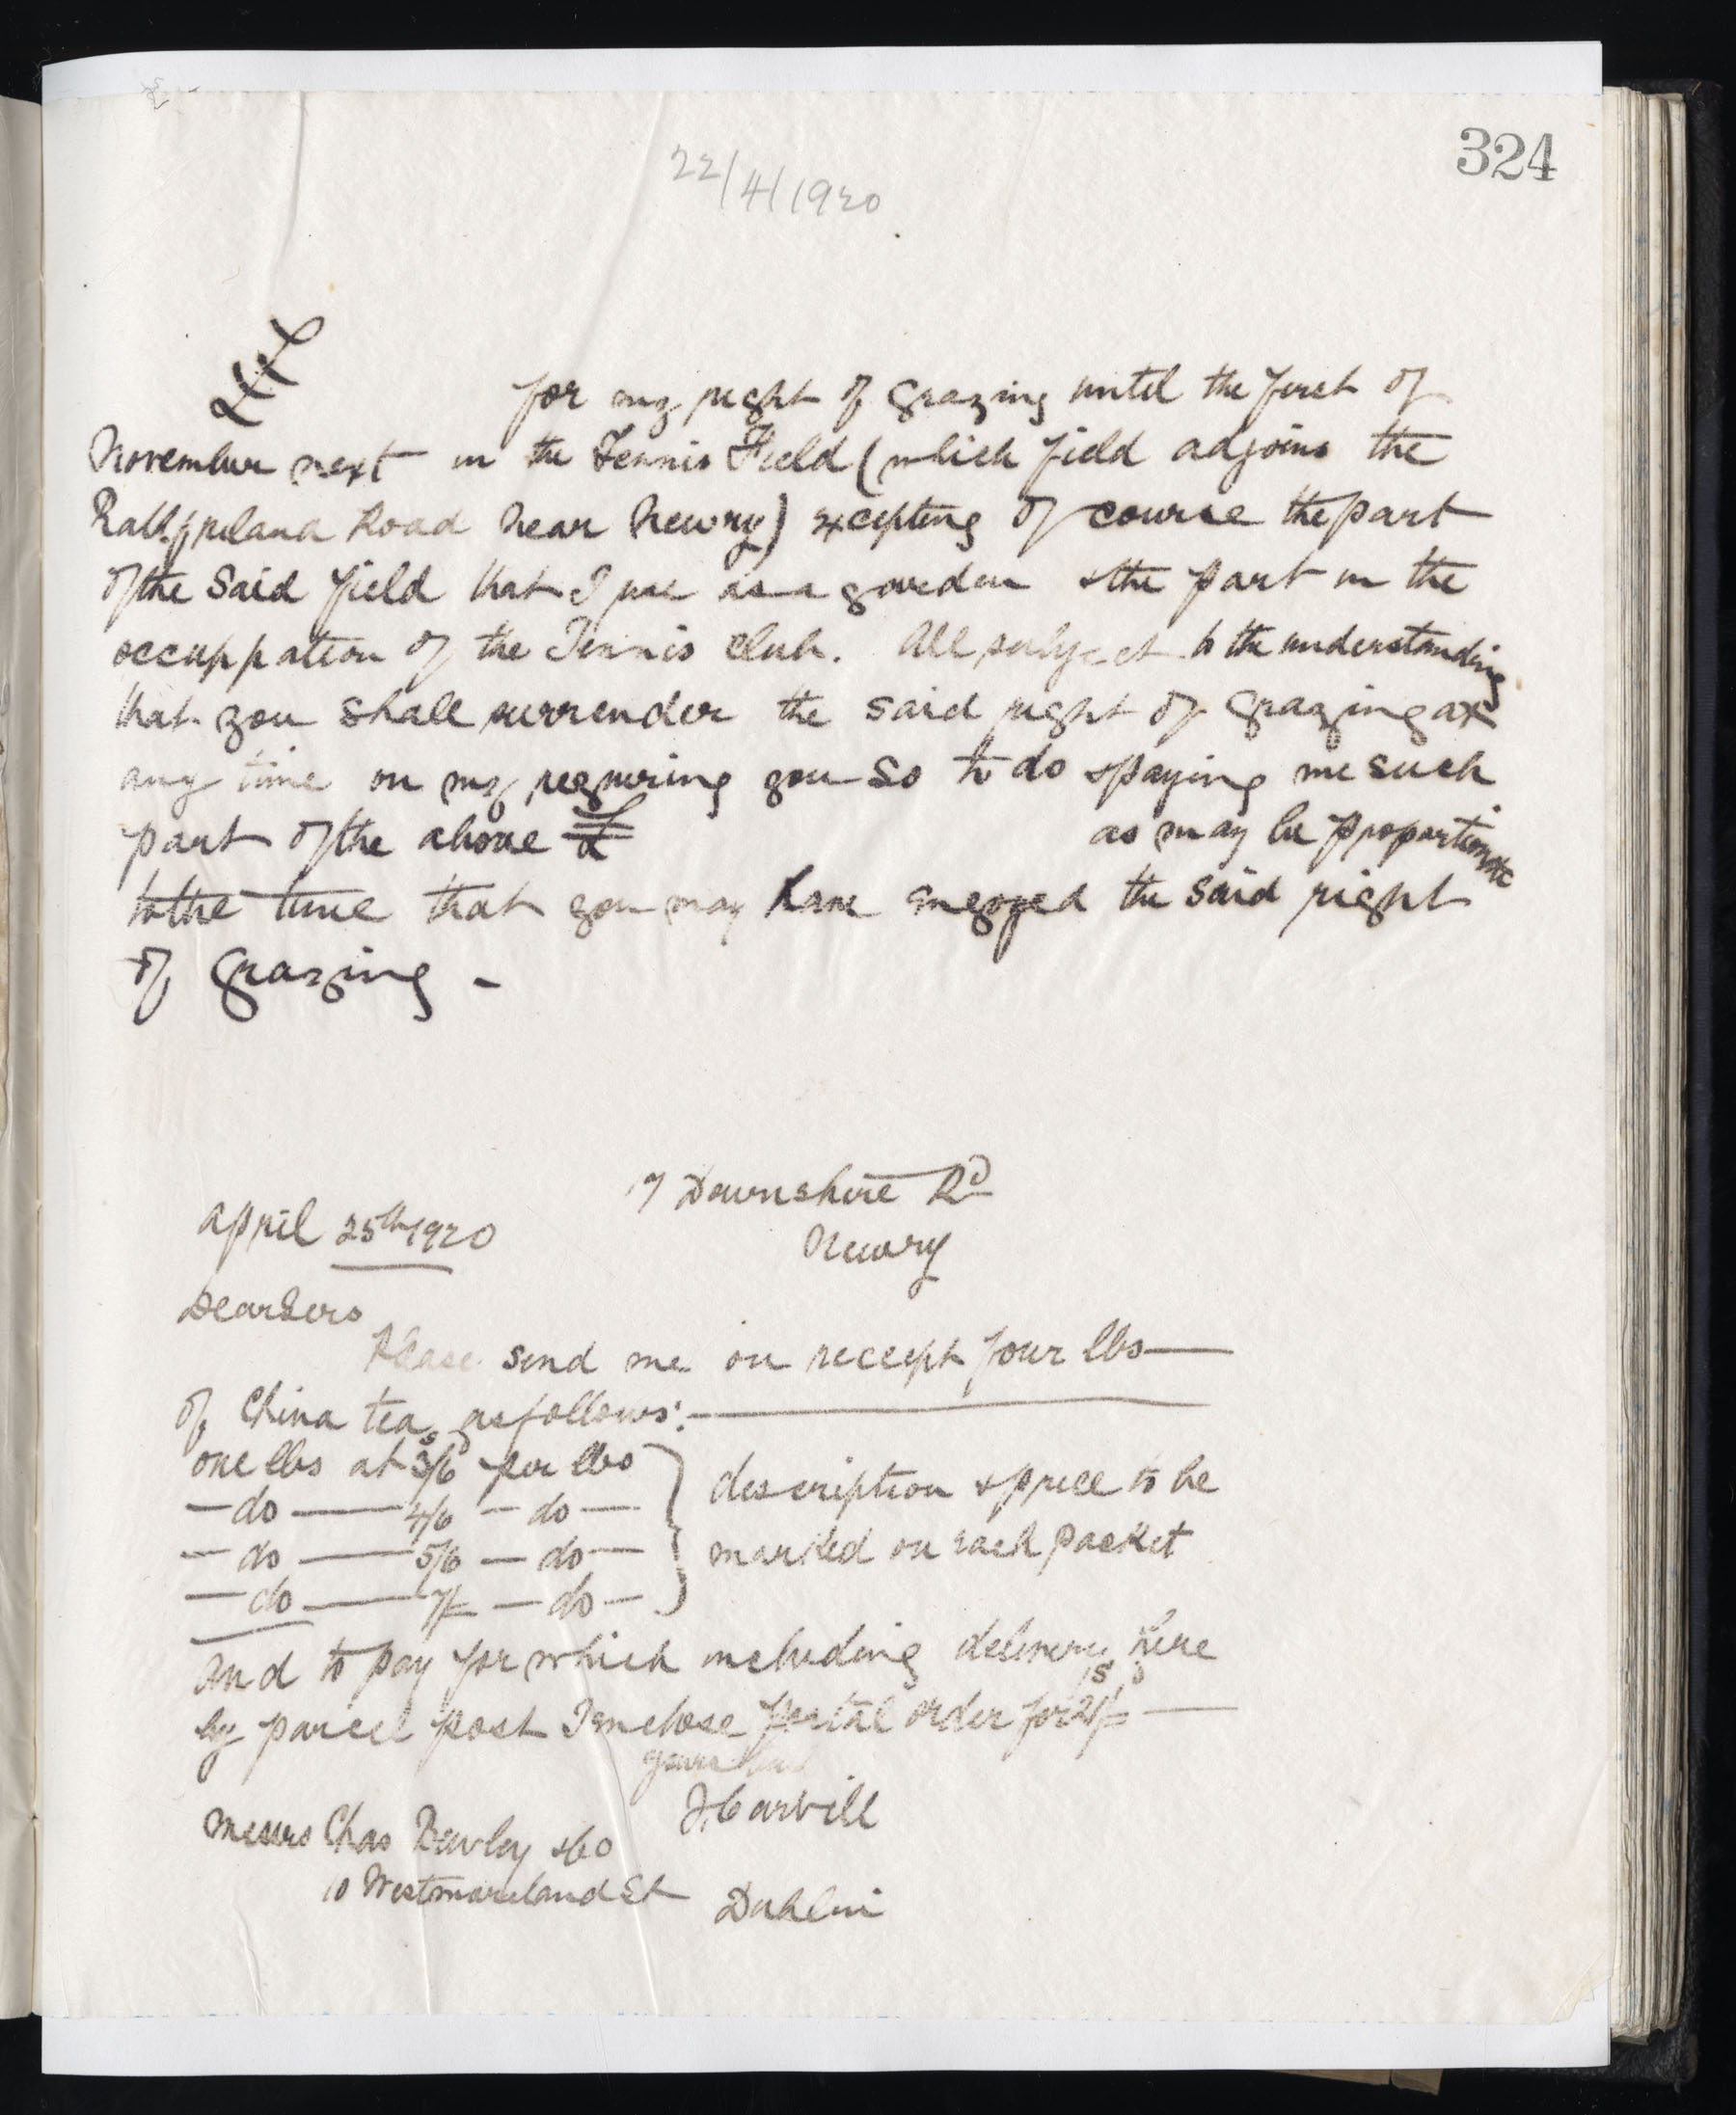 324
22/4/1920
£ for my right of grazing until the first of
November next in the Tennis Field (which field adjoins the
Rathfriland Road near Newry) excepting of course the part
of the said field that I use as a garden & the part in the
occuppation of the Tennis Club. All subject to the understanding
that you shall surrender the said right of grazing at
any time on my requiring you so to do & paying me such
part of the above £ as may be proportionate
to the time that you may have enjoyed the said right
of grazing -
7 Downshire Rd
April 25th 1920
Newry
Dear Sirs
Please send me on receipt four lbs
of China tea, as follows:-
one lbs at 3/6 per lbs
- do - 4/6 - do -
description & price to be
- do - 5/6 - do -
marked on each packet
- do - 7/= - do -
and to pay for which including delivery here
by parcel post I enclose postal order for 21/=
yours
J Carvill
Messrs Chas Bewley & Co
10 Westmoreland St Dublin